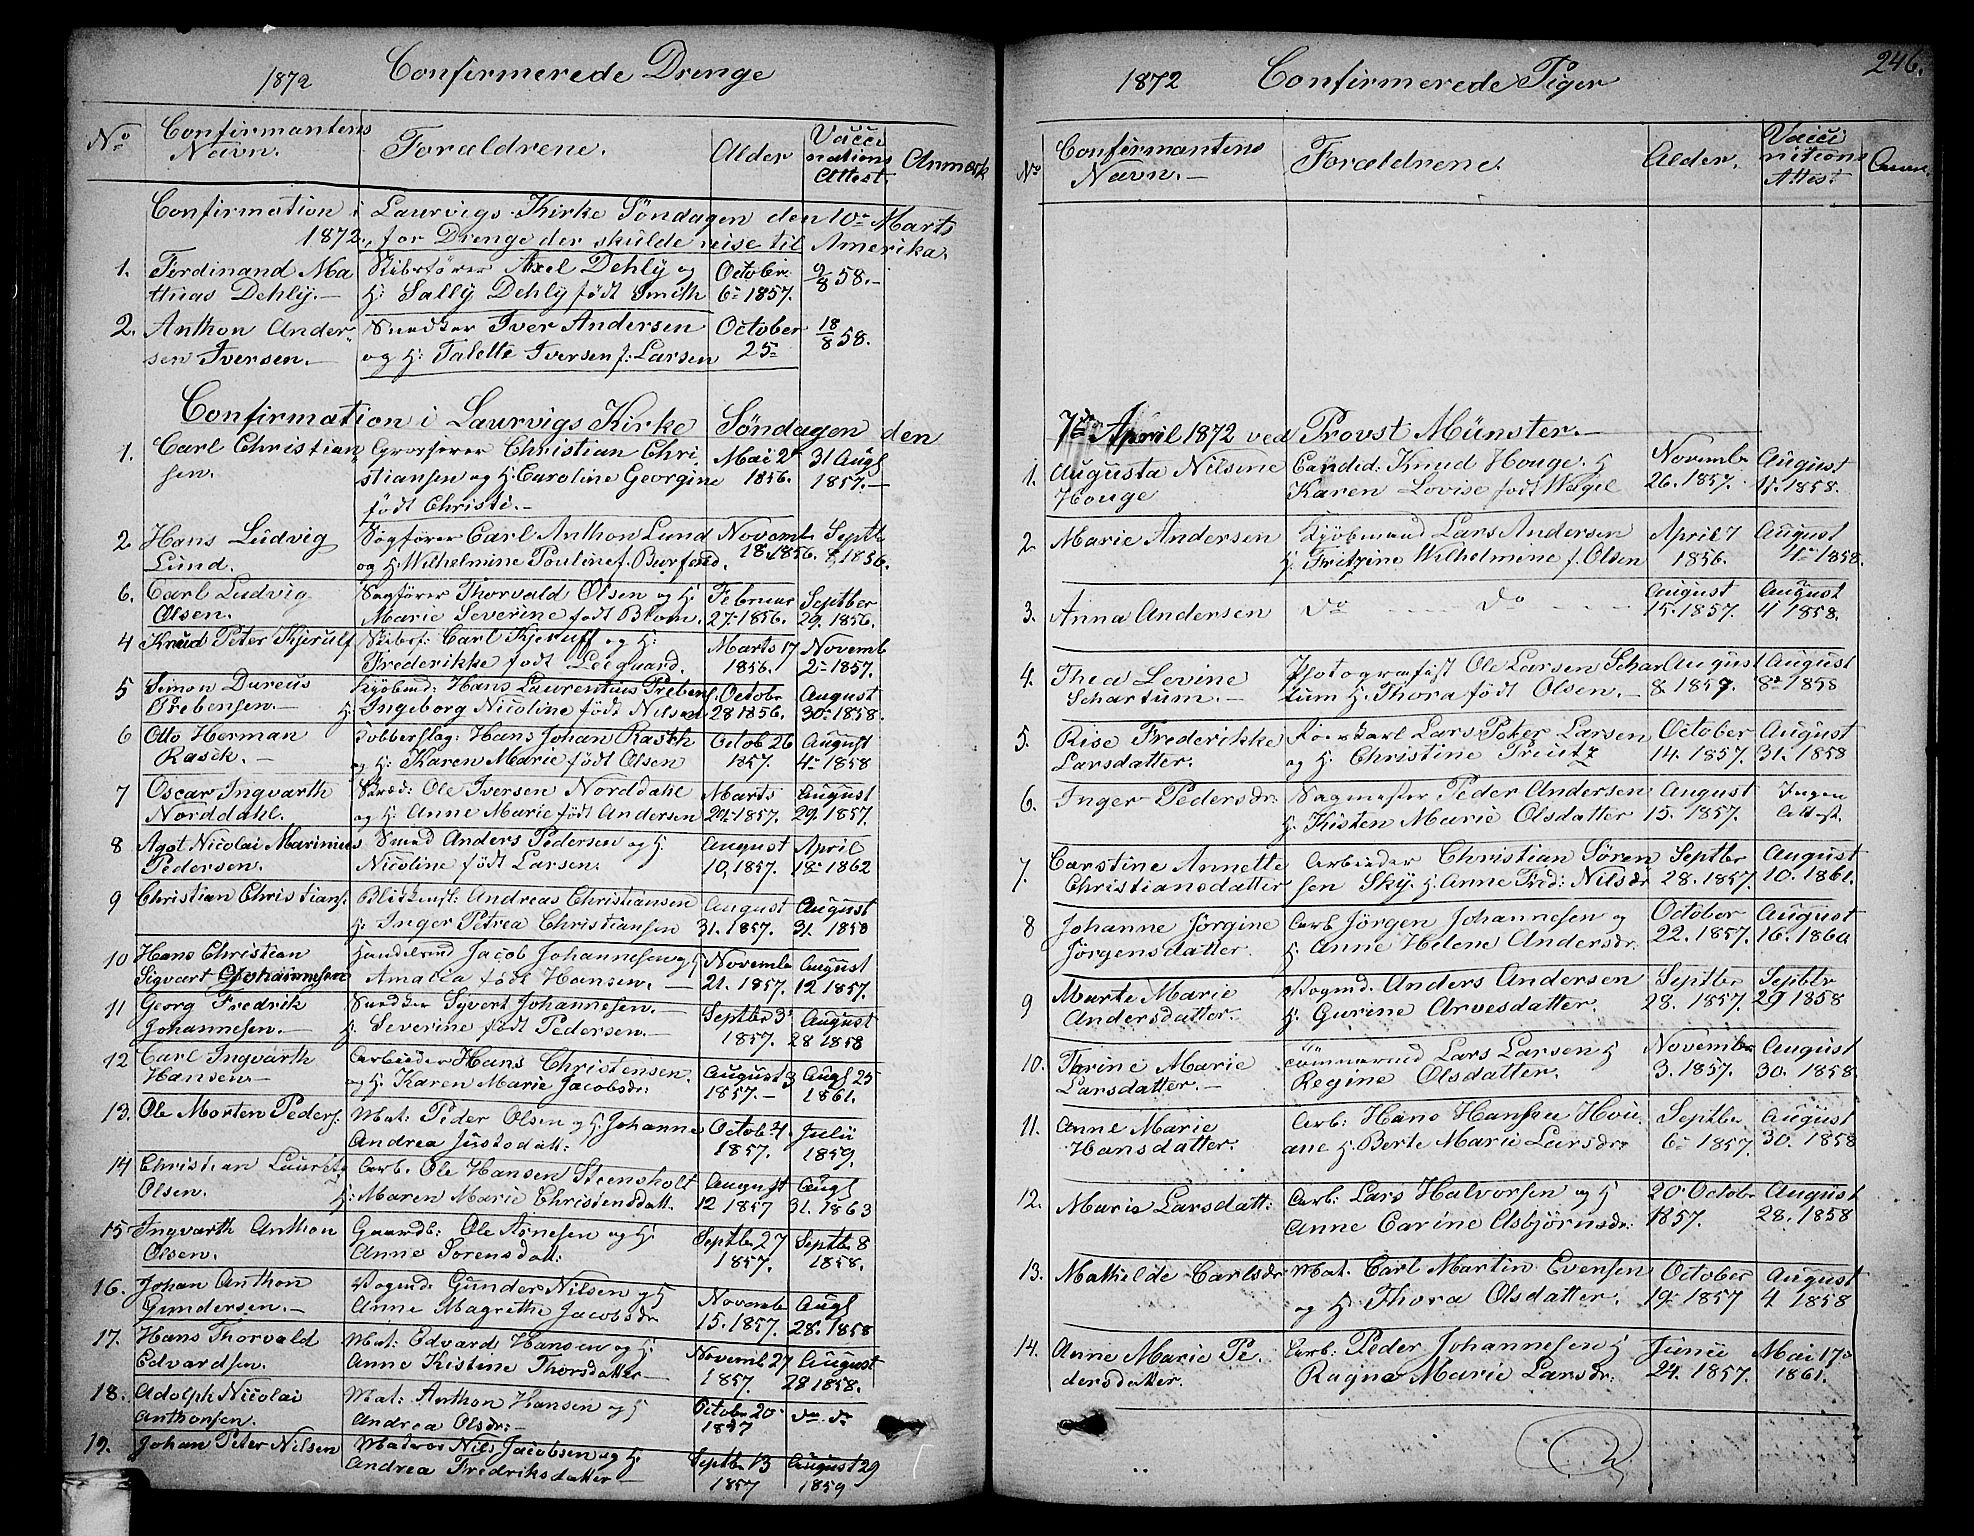 1872 Confirmerede Drenge
No Confirmantens Navn. Foraldrene. Alder Vacci nations Attest. Anmærk
Confirmation i Laurvigs Kirke Söndagen den 10de Marts
1872, for Drenge der skulde reise til Amerika.
1. Ferdinand Ma Axel Dehly og Octobr 9/8 58.
thias Dehly. H: Sally Dehly født Smith 6te 1857.
2. Anthon Ander Snedker Iver Andersen October 18/8 58.
sen Iversen. og H: Talette Iversen f: Larsen 25de
Confirmation i Laurvigs Kirke Söndagen den
1. Carl Christian Christian Chri Mai 2 31 Augs
sen. stiansen og H: Caroline Georgine 1856. 1857.
født Christi.
2 Hans Ludvig Carl Anthon Lund Novemb Septb
Lund. og H: Wilhelmine Pouline f. 18. 1856. 1856.
6. Carl Ludvig Thorvald Olsen og H: Februar Septber
Olsen. Marie Severine født Blom. 27. 1856. 29. 1856.
4 Knud Peter Kjerulf Carl Kjerulf og H: Marts 17 Novemb
Frederikke født 1856. 2 1857.
5 Simon Dureus Kjöbmd: Hans Laurentius Prebens. Octobr August
Prebensen. H: Ingeborg Nicoline født Nilsen 28 1856. 30 1858.
6 Otto Herman Kobberslag: Hans Johan Rasch Octob 26 August
Rasch. og H: Karen Marie født Olsen 1857. 4 1858
7 Oscar Ingvarth Ole Iversen Norddahl Marts August
Norddahl. og H: Anne Marie født Andersen 29. 1857. 29. 1857.
8 Agot Nicolai Marinius Smed Anders Pedersen og H August April
Pedersen. Nicoline født Larsen. 10, 1857. 18 1862
9 Christian Christians. Blikkensl: Andreas Christiansen August August
H: Inger Petrea Christiansen 31. 1857. 31. 1858
10 Hans Christian Jacob Johannesen og H Novemb August
Sigvart Johannesen Amalia født Hansen. 21. 1857. 12 1857.
11 Georg Fredrik Snedker Syvert Johannesen. Septbr 3 August
Johannesen. H: Severine født Pedersen. 1857. 28 1858
12 Carl Ingvarth Arbeider Hans Christensen. August 3 Augs 25
Hansen. og H: Karen Marie Jacobsdr: 1857. 1861.
13. Ole Morten Peders: Mat: Peder Olsen og H Johanne Octob 4 Julii
Andrea Justsdatt: 1857. 1859.
14 Christian Lauritz Arb. Ole Hansen Steensholt August Augs
Olsen. H: Maren Marie Christensdatt. 12 1857 31. 1863
15 Ingvarth Anthon Gaardb: Ole Arnesen og H: Septbr 27 Septb 8
Olsen. Anne Sörensdatt: 1857. 1858.
16. Johan Anthon Vognmd: Gunder Nilsen og H Novemb Augs
Gundersen. Anne Magrethe Jacobsdr 15. 1857. 28. 1858
17. Hans Thorvald Mat: Edvard Hansen og H: Novemb 27 August
Edvardsen. Anne Kistine Thorsdatter 1857. 28 1858.
18. Adolph Nicolai Mat: Anthon Hansen og H October 20 do do
Anthonsen. Andrea Olsdr: 1857
19. Johan Peter Nilsen Matros Nils Jacobsen og H: Septbr 13 August 29
Andrea Fredriksdatter 1857 1859
1872 Confirmerede Piger 246.
No Confirmantens Navn. Foraldrene. Alder. Vacci nations Attest
7de April 1872 ved Provst Münster.
1. Augusta Nilsine Candid: Knud Houge. H Novemb August
Houge Karen Lovise født Weigel 26. 1857. 11. 1858.
2 Marie Andersen Kjöbmand Lars Andersen April 7 August
H: Fritzine Wilhelmine f. Olsen 1856. 11 1858.
3. Anna Andersen do do August August
15. 1857. 4 1858.
4. Thea Levine Photografist Ole Larsen Schar August August
Schartum. tum H: Thora født Olsen. 8. 1857. 8 1858
5. Rise Frederikke Lars Peter Larsen October August
Larsdatter. og H: Christine Preutz 14. 1857. 31. 1858
6. Inger Pedersdr. Sagmester Peder Andersen August Ingen
H: Kisten Marie Olsdatter 15. 1857. Attest.
7. Carstine Annette Arbeider Christian Sören Septbr August
Christiansdatter sen Sky. H: Anne Fred: Nilsdr 28. 1857. 10. 1861.
8 Johanne Jörgine Arb Jörgen Johannesen og October August
Jörgensdatter. H: Anne Helene Andersdr. 22. 1857. 16. 1860
9 Marte Marie Vognmd. Anders Andersen Septbr Septbr
Andersdatter. H: Gurine Arvesdatter. 28. 1857. 29 1858
10. Tarine Marie Tömmermd Lars Larsen H Novembr August
Larsdatter. Regine Olsdatter. 3. 1857. 30. 1858.
11. Anne Marie Arb: Hans Hansen Hvii Septbr August
Hansdatter. ane H: Berte Marie Larsdr: 6 1857. 30. 1858
12. Marie Larsdatt: Arb: Lars Halvorsen og H 20 Octobr August
Anne Carine Asbjörnsdr: 1857. 28. 1858
13. Mathilde Carlsdr Mat. Carl Martin Evensen October August
og H: Thora Olsdatter. 19 1857 4 1858
14. Anne Marie Pe Arb: Peder Johannesen H Junii Mai 17
dersdatter. Ragna Marie Larsdr: 24. 1857. 1861.